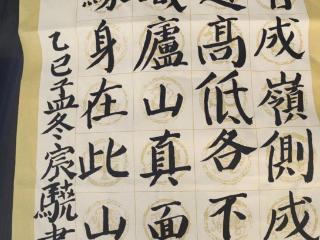 看成嶺側成
近高低各不
識廬山真面
緣身在此山
乙巳孟冬宸驍書